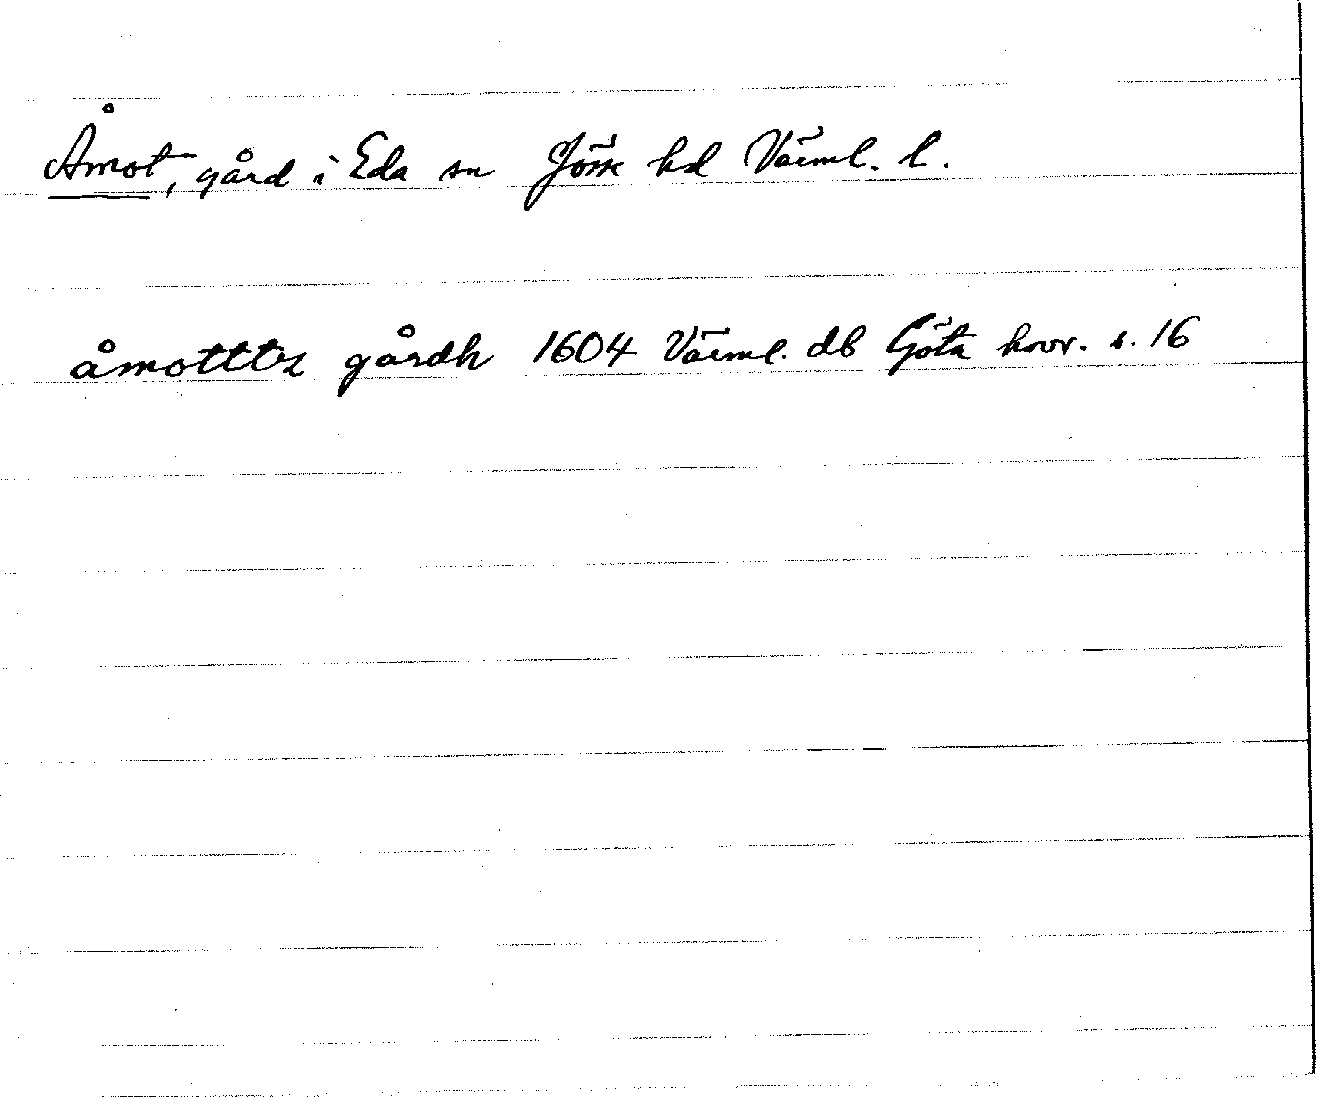 Åmot, gård i Eda sn Jösse hd Värml. l.
åmotttz gårdh 1604 Värml. db Göta hovr. s. 16